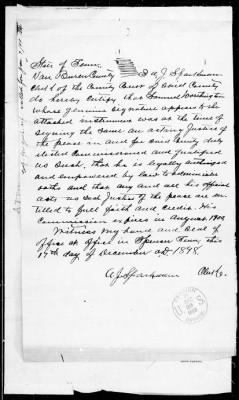 State of Tenn.
Van Buren County I A J Sparkman
Clerk of the County Court of said County
do hereby Certify that Samuel Worthington
whose genuine signature appears to the
attached instrument was at the time of
signing the same an acting Justice of
the peace in and for said County duly
elected Commissioned and qualified
as such, that he is legally authorized
and empowered by law to administer
oaths and that any and all his official
acts as such Justice of the peace are en
titled to full faith and credit. His
Commission expires in August 1900
Witness my hand and Seal of
office at office in Spencer Tenn, this
17th day of December AD 1898.
A J Sparkman Clerk
U S